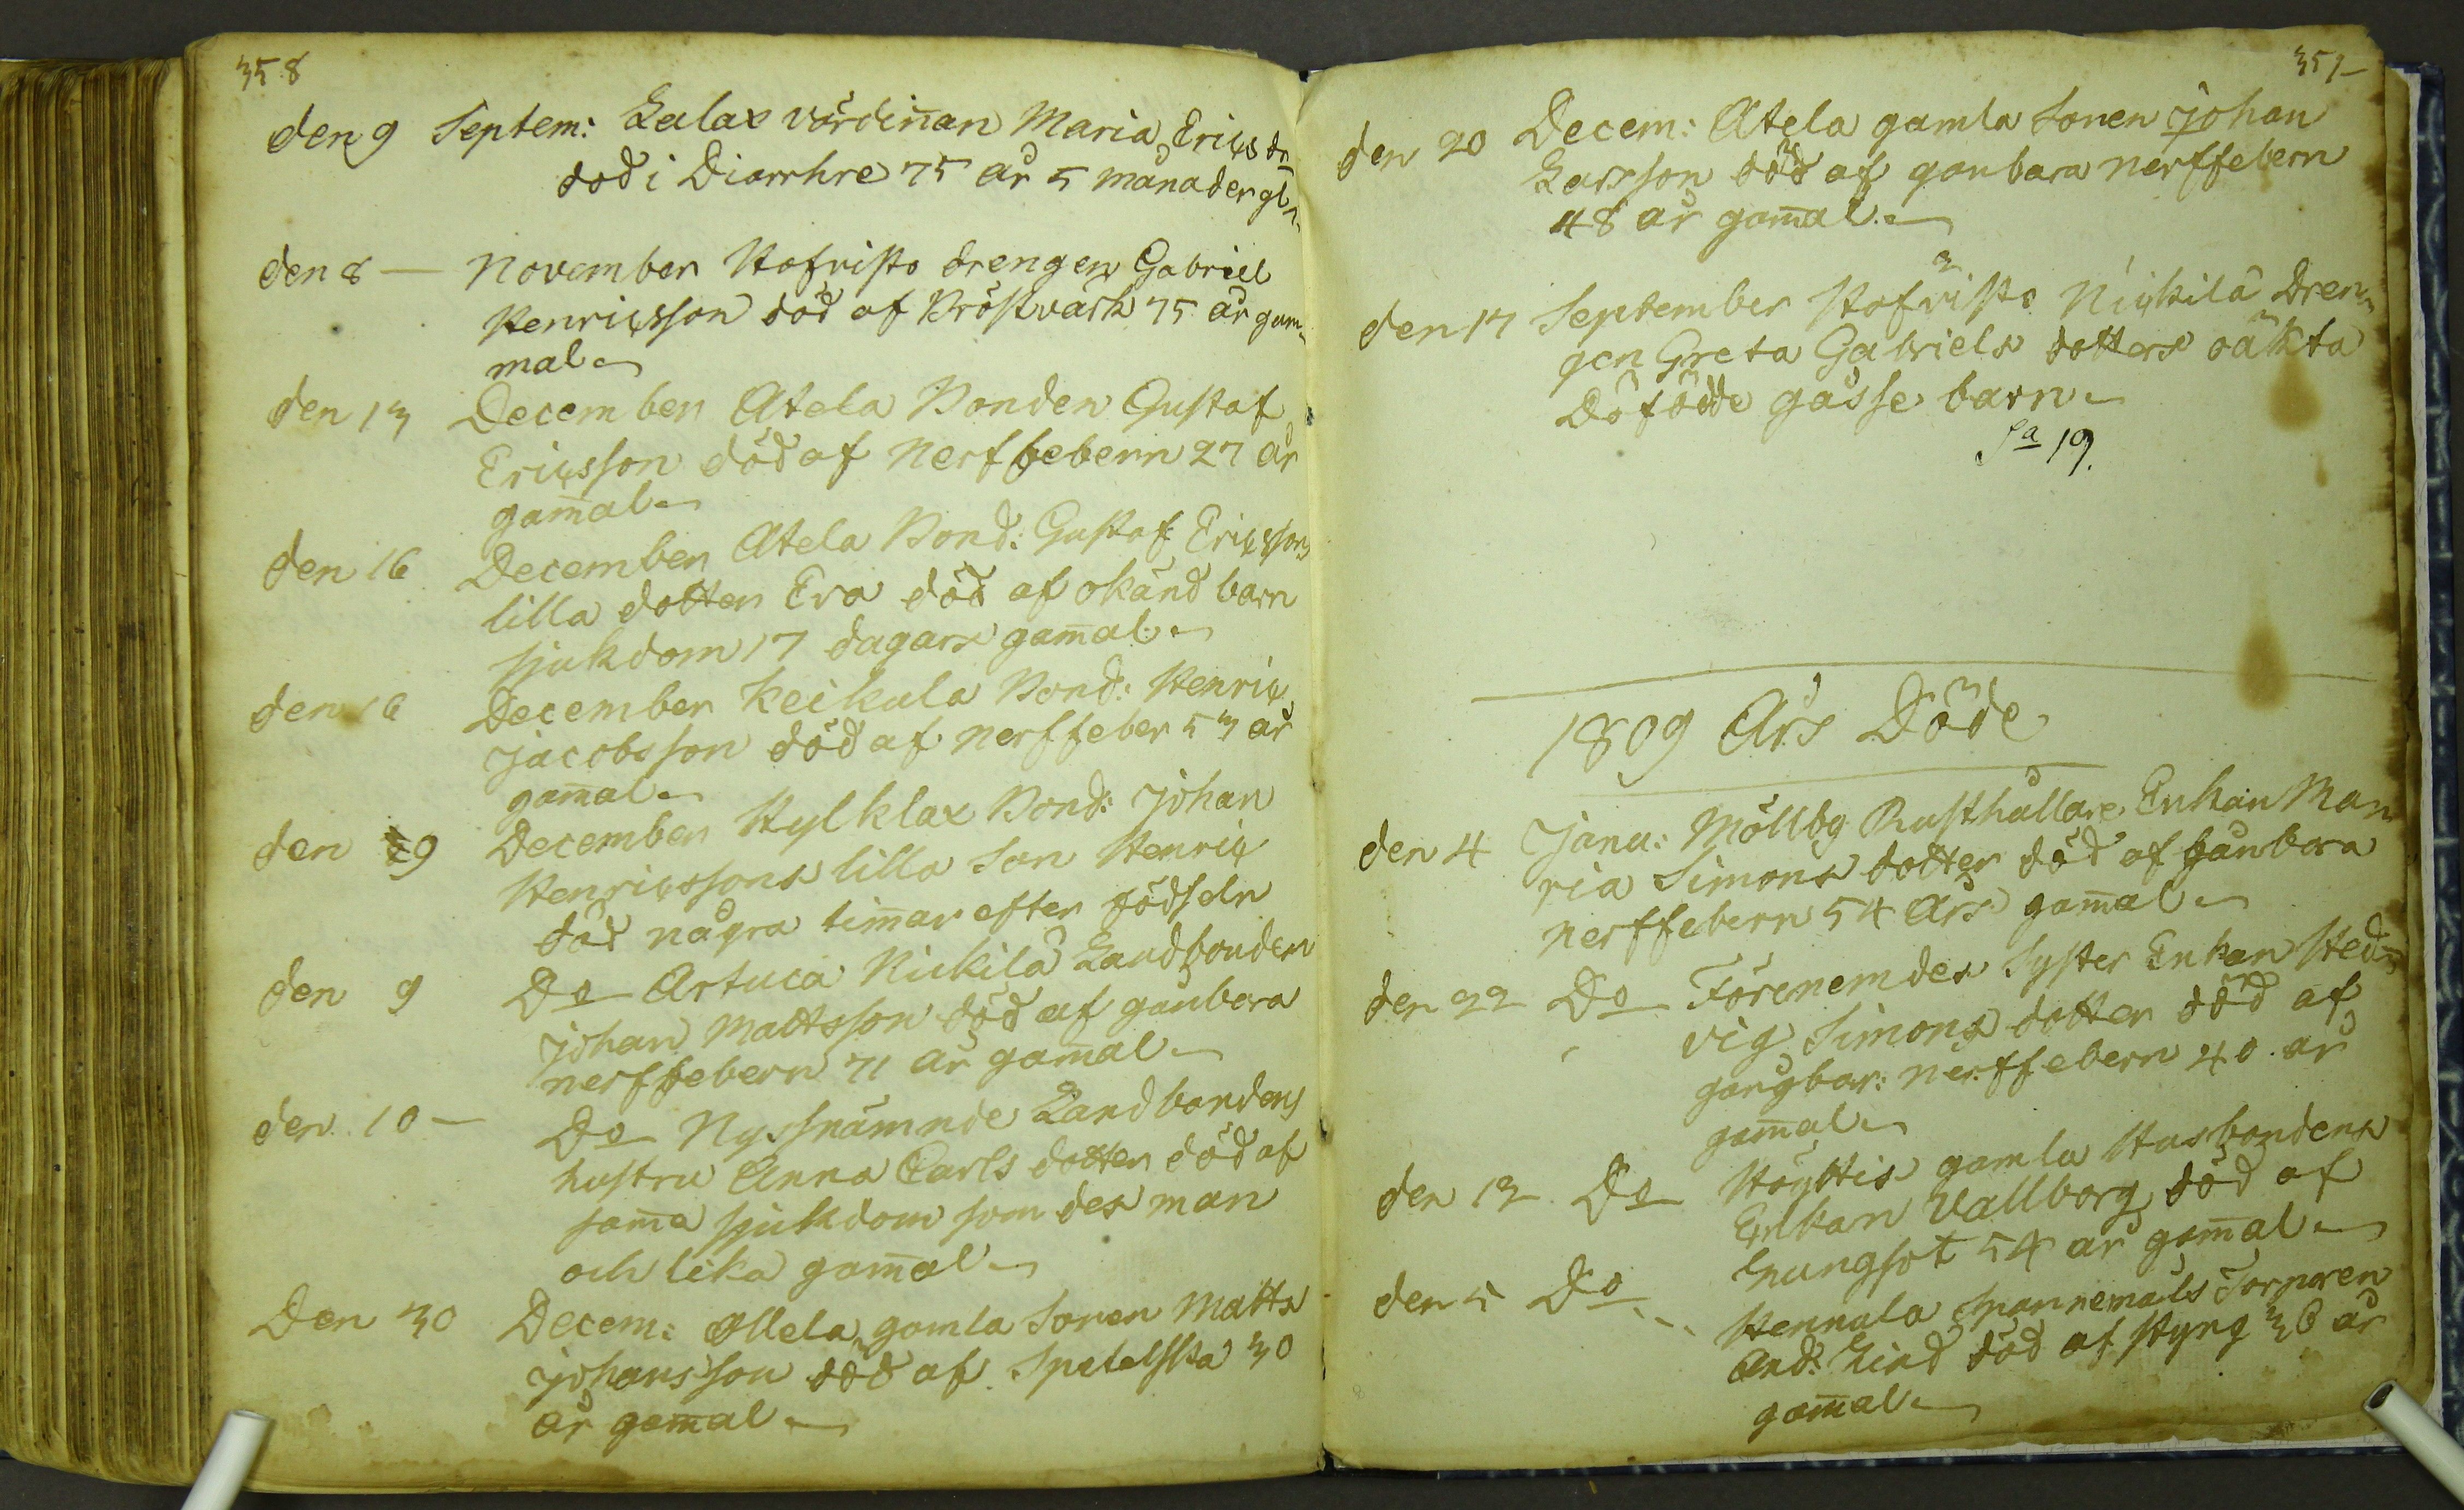 358
den 9 Septem: Lalax vördin̄an Maria Erics dr
död i Diarrhre 75 år 5 månader gl
den 8 — November Hofristo drengen Gabriel
Henricsson död af Bröstvärk 75 år gam-
mal
den 13 December Atela Bonden Gustaf
Ericsson död af Nerffebern 27 år
gam̄al
den 16 December Atela Bond: Gustaf Ericssons
lilla dotter Eva död af okänd barn
sjukdom 17 dagars gam̄al
den 16 December Keikala Bond: Henric
Jacobsson död af nerffeber 53 år
gam̄al
den 29 December Hylklax Bond: Johan
Henricssons lilla Son Henric
död några tim̄ar efter födseln
den 9 Do Artuca Nickilä Landbonden
Johan Mattsson död af gånbara
nerffebern 71 år gam̄al
den 10 — Do Nyssnämnde Landbondens
hustru Anna Carls dotter död af
sam̄a sjukdom som des man
och lika gam̄al
Den 30 Decem: Ollela gamla Sonen Matts
Johansson död af Spetelska 30
år gam̄al
351
den 20 Decem: Atela gamla Sonen Johan
Larsson död af ganbara nerffebern
48 år gam̄al
den 17 September Hofristo Nickilä Dren-
gen Greta Gabriels dotters oäkta
Döfödde gåsse barn
Sa 19.
1809 Års Döde
den 4 Janu: Möllbg Rusthållare Enkan Ma-
ria Simons dotter död af gånbara
nerffebern 54 Års gam̄al
den 22 Do Förenemdes Syster Enkan Hed-
vig Simons dotter död af
gangbar: nerffebern 40 år
gam̄al
den 12 Do Höyttis gamla Husbondens
Enkan Vallborg död af
Lungsot 54 år gam̄al
den 5 Do Hennala Spannemåls Torparen
And: Lind död af Styng 36 år
gam̄al